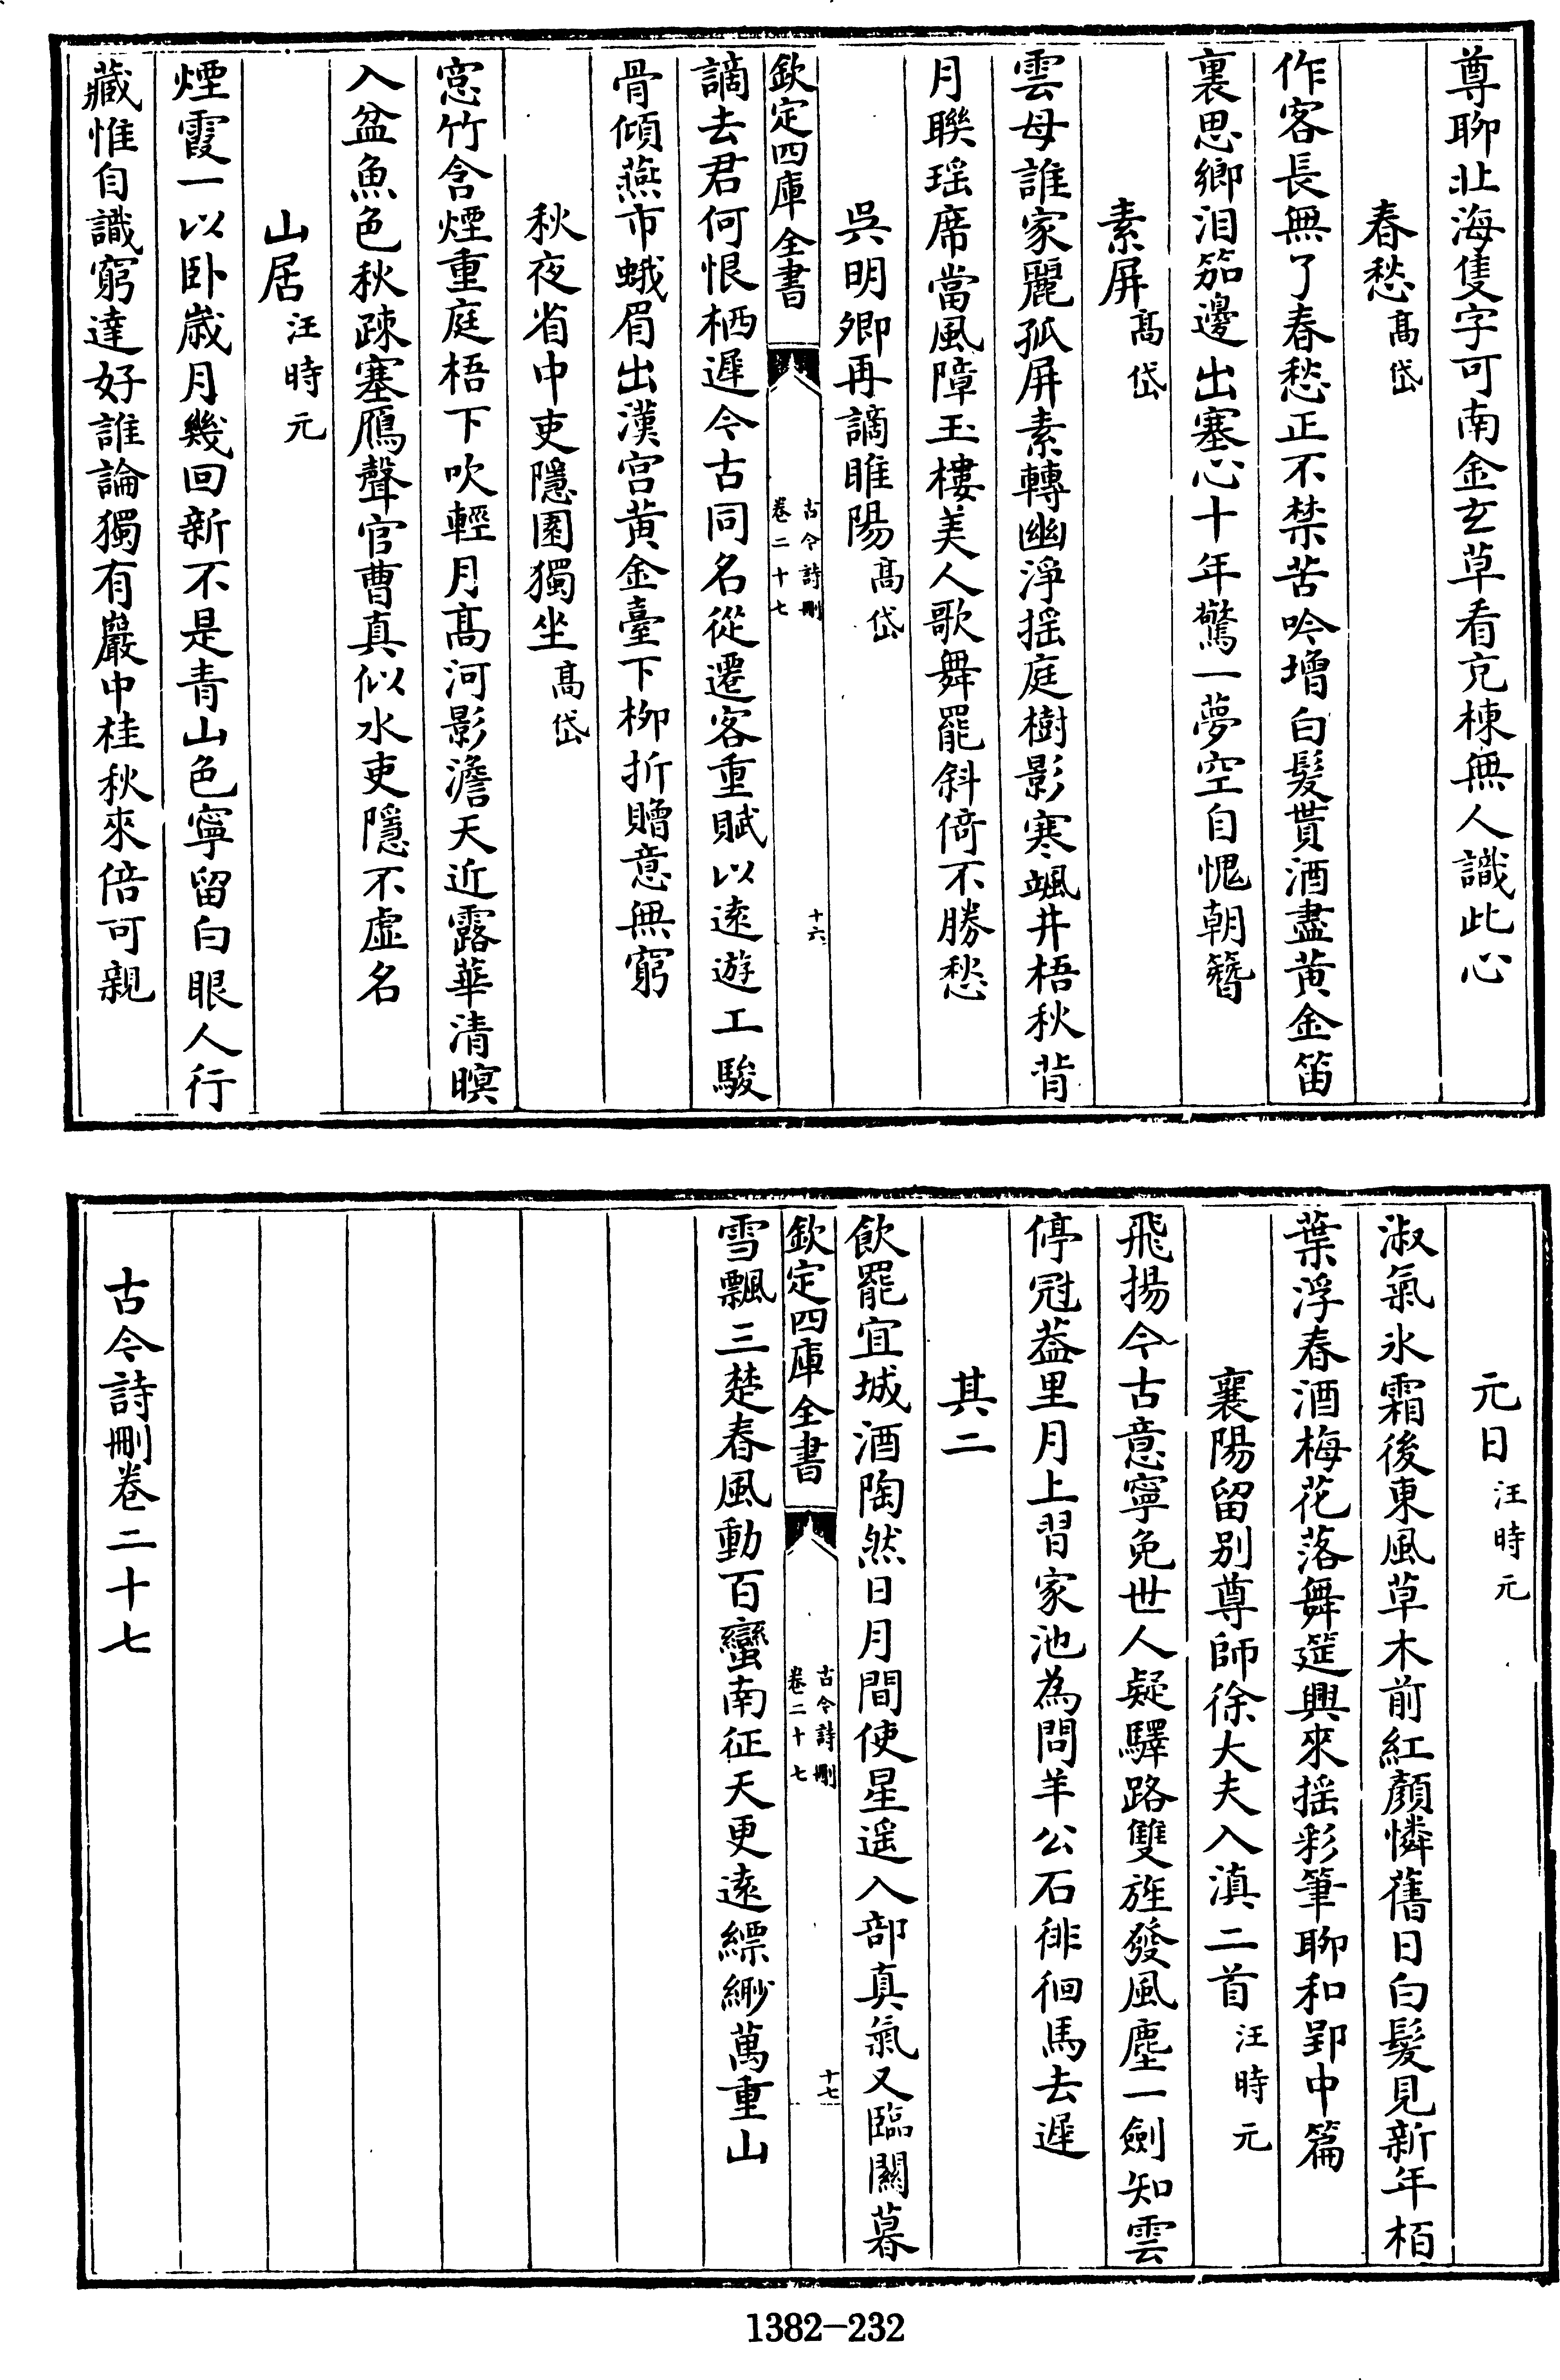 尊聊北海隻字可南金玄草看充棟無人識此心
春愁高岱
作客長無了春愁正不禁苦吟增白髮貰酒盡黄金笛
裏思鄉淚笳邊出塞心十年驚一夢空自愧朝簪
素屏高岱
雲母誰家麗孤屏素轉幽淨揺庭樹影寒颯井梧秋背
月聯瑶席當風障玉樓美人歌舞罷斜倚不勝愁
吳明卿再謫睢陽高岱
欽定四庫全書
古今詩刪
卷二十七
十六
謫去君何恨栖遲今古同名從遷客重賦以逺遊工駿
骨傾燕市蛾眉出漢宫黄金臺下柳折贈意無窮
秋夜省中吏隱園獨坐高岱
窓竹含煙重庭梧下吹輕月高河影澹天近露華清暝
入盆魚色秋疎塞鴈聲官曹真似水吏隱不虛名
山居汪時元
煙霞一以卧嵗月幾回新不是青山色寧留白眼人行
藏惟自識窮達好誰論獨有巖中桂秋來倍可親
元日汪時元
淑氣氷霜後東風草木前紅顏憐舊日白髮見新年栢
葉浮春酒梅花落舞筵興來揺彩筆聊和郢中篇
襄陽留別尊師徐大夫入滇二首汪時元
飛揚今古意寧免世人疑驛路雙旌發風塵一劍知雲
停冠葢里月上習家池為問羊公石徘徊馬去遲
其二
飲罷宜城酒陶然日月間使星遥入部真氣又臨關暮
欽定四庫全書
古今詩刪
卷二十七
十七
雪飄三楚春風動百蠻南征天更逺縹緲萬重山
古今詩刪卷二十七
1382-232